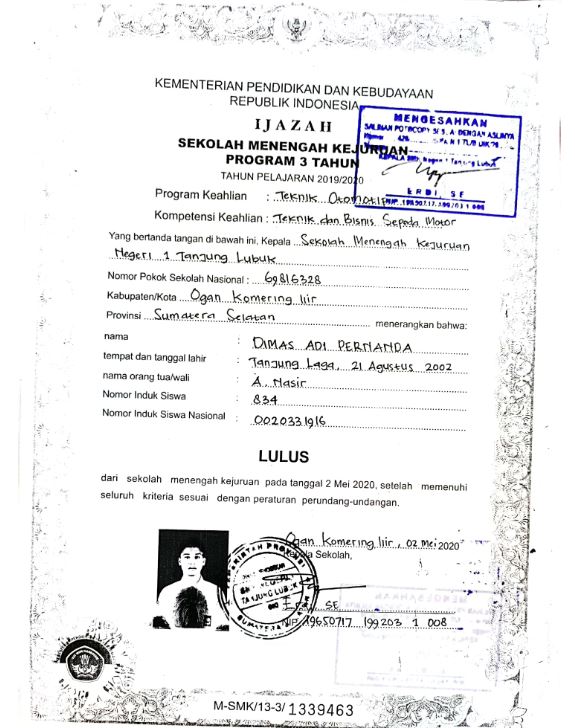 KEMENTERIAN PENDIDIKAN DAN KEBUDAYAAN
REPUBLIK INDONESIA
IJAZAH
SEKOLAH MENENGAH KEJURUAN
PROGRAM 3 TAHUN
TAHUN PELAJARAN 2019/2020
MENGESAHKAN
SALINAN FOTOCOPY SESUAI DENGAN ASLINYA
KEPALA SMK Negeri 1 Tanjung Lubuk
ERDI, SE
NIP. 19650717 199203 1 008
Program Keahlian : Teknik Otomotif
Kompetensi Keahlian : Teknik dan Bisnis Sepeda Motor
Yang bertanda tangan di bawah ini, Kepala Sekolah Menengah Kejuruan
Negeri 1 Tanjung Lubuk
Nomor Pokok Sekolah Nasional : 69816328
Kabupaten/Kota Ogan Komering Ilir
Provinsi Sumatera Selatan menerangkan bahwa:
nama : DIMAS ADI PERNANDA
tempat dan tanggal lahir : Tanjung Laga, 21 Agustus 2002
nama orang tua/wali : A. Nasir
Nomor Induk Siswa : 834
Nomor Induk Siswa Nasional : 0020331916
LULUS
dari sekolah menengah kejuruan pada tanggal 2 Mei 2020, setelah memenuhi
seluruh kriteria sesuai dengan peraturan perundang-undangan.
Ogan Komering Ilir, 02 Mei 2020
Kepala Sekolah,
TANJUNG LUBUK
Erdi, SE
NIP. 19650717 199203 1 008
M-SMK/13-3/ 1339463